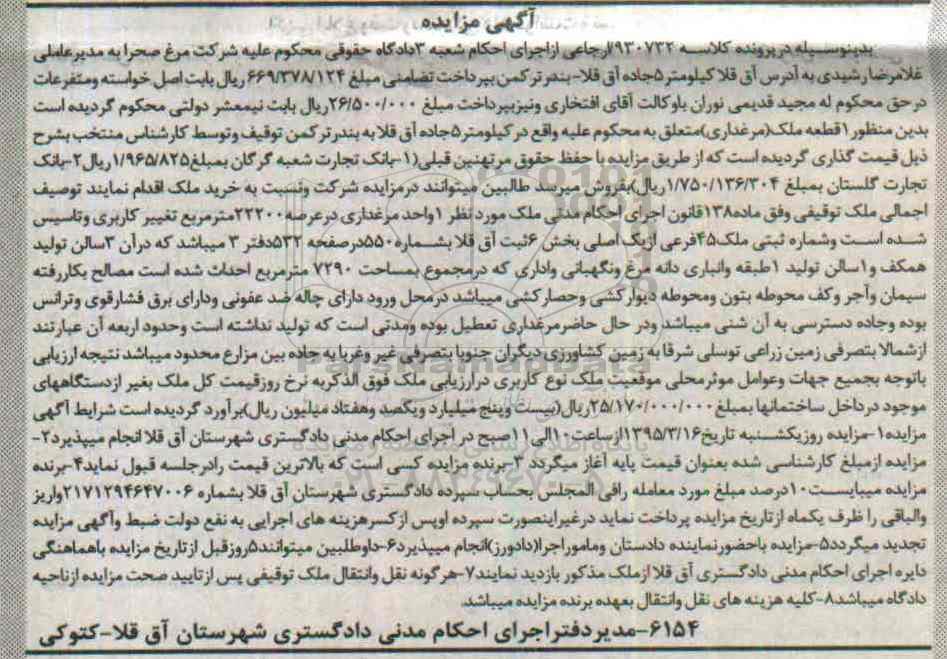 آگهی مزایده
بدینوسیله درپرونده کلاسه ۹۳۰۷۳۲ارجاعی ازاجرای احکام شعبه ۳دادگاه حقوقی محکوم علیه شرکت مرغ صحرا به مدیرعاملی
غلامرضا رشیدی به آدرس آق قلا کیلومتر۵جاده آق قلا-بندرترکمن بپرداخت تضامنی مبلغ ۶۶۹/۳۷۸/۱۲۴ریال بابت اصل خواسته ومتفرعات
درحق محکوم له مجید قدیمی نوران باوکالت آقای افتخاری ونیزبپرداخت مبلغ ۲۶/۵۰۰/۰۰۰ریال بابت نیمعشر دولتی محکوم گردیده است
بدین منظور۱قطعه ملک(مرغداری)متعلق به محکوم علیه واقع درکیلومتر۵جاده آق قلا به بندرترکمن توقیف وتوسط کارشناس منتخب بشرح
ذیل قیمت گذاری گردیده است که از طریق مزایده با حفظ حقوق مرتهنین قبلی(۱-بانک تجارت شعبه گرگان بمبلغ۱/۹۶۵/۸۲۵ریال۲-بانک
تجارت گلستان بمبلغ ۱/۷۵۰/۱۳۶/۳۰۴ریال)بفروش میرسد طالبین میتوانند درمزایده شرکت ونسبت به خرید ملک اقدام نمایند توصیف
اجمالی ملک توقیفی وفق ماده۱۳۸قانون اجرای احکام مدنی ملک مورد نظر ۱واحد مرغداری درعرصه۲۲۲۰۰مترمربع تغییر کاربری وتاسیس
شده است وشماره ثبتی ملک۴۵فرعی ازیک اصلی بخش ۶ثبت آق قلا بشماره۵۵۰درصفحه ۵۳۲دفتر ۳ میباشد که درآن ۳سالن تولید
همکف و۱سالن تولید ۱طبقه وانباری دانه مرغ ونگهبانی واداری که درمجموع بمساحت ۷۲۹۰ مترمربع احداث شده است مصالح بکاررفته
سیمان وآجر وکف محوطه بتون ومحوطه دیوارکشی وحصارکشی میباشد درمحل ورود دارای چاله ضد عفونی ودارای برق فشارقوی وترانس
بوده وجاده دسترسی به آن شنی میباشد ودر حال حاضرمرغداری تعطیل بوده ومدتی است که تولید نداشته است وحدود اربعه آن عبارتند
ازشمالا بتصرفی زمین زراعی توسلی شرقا به زمین کشاورزی دیگران جنوبا بتصرفی غیر وغربا به جاده بین مزارع محدود میباشد نتیجه ارزیابی
باتوجه بجمیع جهات وعوامل موثرمحلی موقعیت ملک نوع کاربری درارزیابی ملک فوق الذکربه نرخ روزقیمت کل ملک بغیر ازدستگاههای
موجود درداخل ساختمانها بمبلغ۲۵/۱۷۰/۰۰۰/۰۰۰ریال(بیست وپنج میلیارد ویکصد وهفتاد میلیون ریال)برآورد گردیده است شرایط آگهی
مزایده۱-مزایده روزیکشنبه تاریخ۱۳۹۵/۳/۱۶ازساعت۱۰الی۱۱صبح در اجرای احکام مدنی دادگستری شهرستان آق قلا انجام میپذیرد۲-
مزایده ازمبلغ کارشناسی شده بعنوان قیمت پایه آغاز میگردد ۳-برنده مزایده کسی است که بالاترین قیمت رادرجلسه قبول نماید۴-برنده
مزایده میبایست۱۰درصد مبلغ مورد معامله رافی المجلس بحساب سپرده دادگستری شهرستان آق قلا بشماره ۲۱۷۱۲۹۴۶۴۷۰۰۶واریز
والباقی را ظرف یکماه ازتاریخ مزایده پرداخت نماید درغیراینصورت سپرده اوپس ازکسرهزینه های اجرایی به نفع دولت ضبط وآگهی مزایده
تجدید میگردد۵-مزایده باحضورنماینده دادستان وماموراجرا(دادورز)انجام میپذیرد۶-داوطلبین میتوانند۵روزقبل ازتاریخ مزایده باهماهنگی
دایره اجرای احکام مدنی دادگستری آق قلا ازملک مذکور بازدید نمایند۷-هرگونه نقل وانتقال ملک توقیفی پس ازتایید صحت مزایده ازناحیه
دادگاه میباشد۸-کلیه هزینه های نقل وانتقال بعهده برنده مزایده میباشد.
۶۱۵۴-مدیردفتراجرای احکام مدنی دادگستری شهرستان آق قلا-کتوکی
ParsNamadData